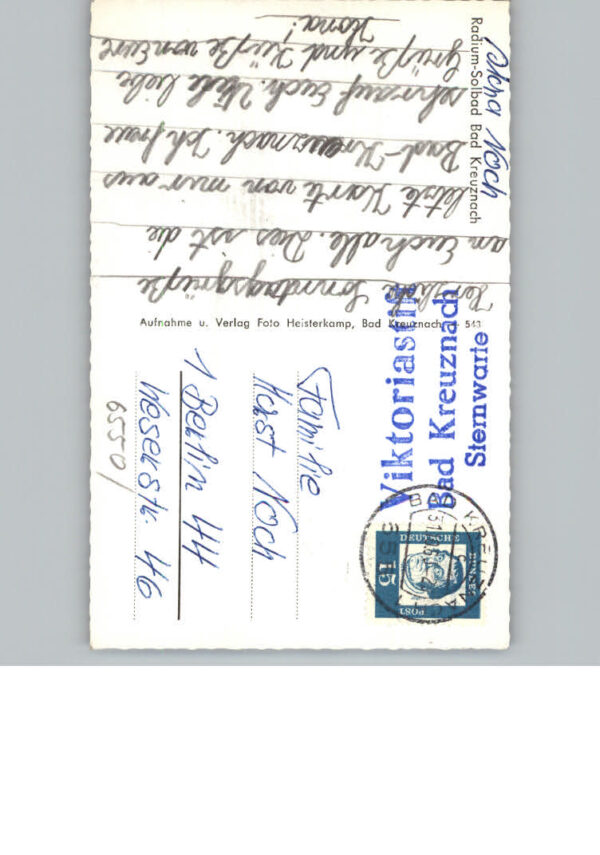 Radium-Solbad Bad Kreuznach
Noch
Herzliche Sonntagsgrüße
an Euch alle. Dies ist die
letzte Karte von mir aus
Bad-Kreuznach. Ich freue
sehr auf Euch. Viele liebe
Grüße und Küße von Eure
Ilona!
Aufnahme u. Verlag Foto Heisterkamp, Bad Kreuznach 543
Viktoriastift
Bad Kreuznach
Sternwarte
BAD KREUZNACH
DEUTSCHE
BUNDES
POST
15
Familie
Horst Noch
1 Berlin 44
Weserstr. 46
6550/